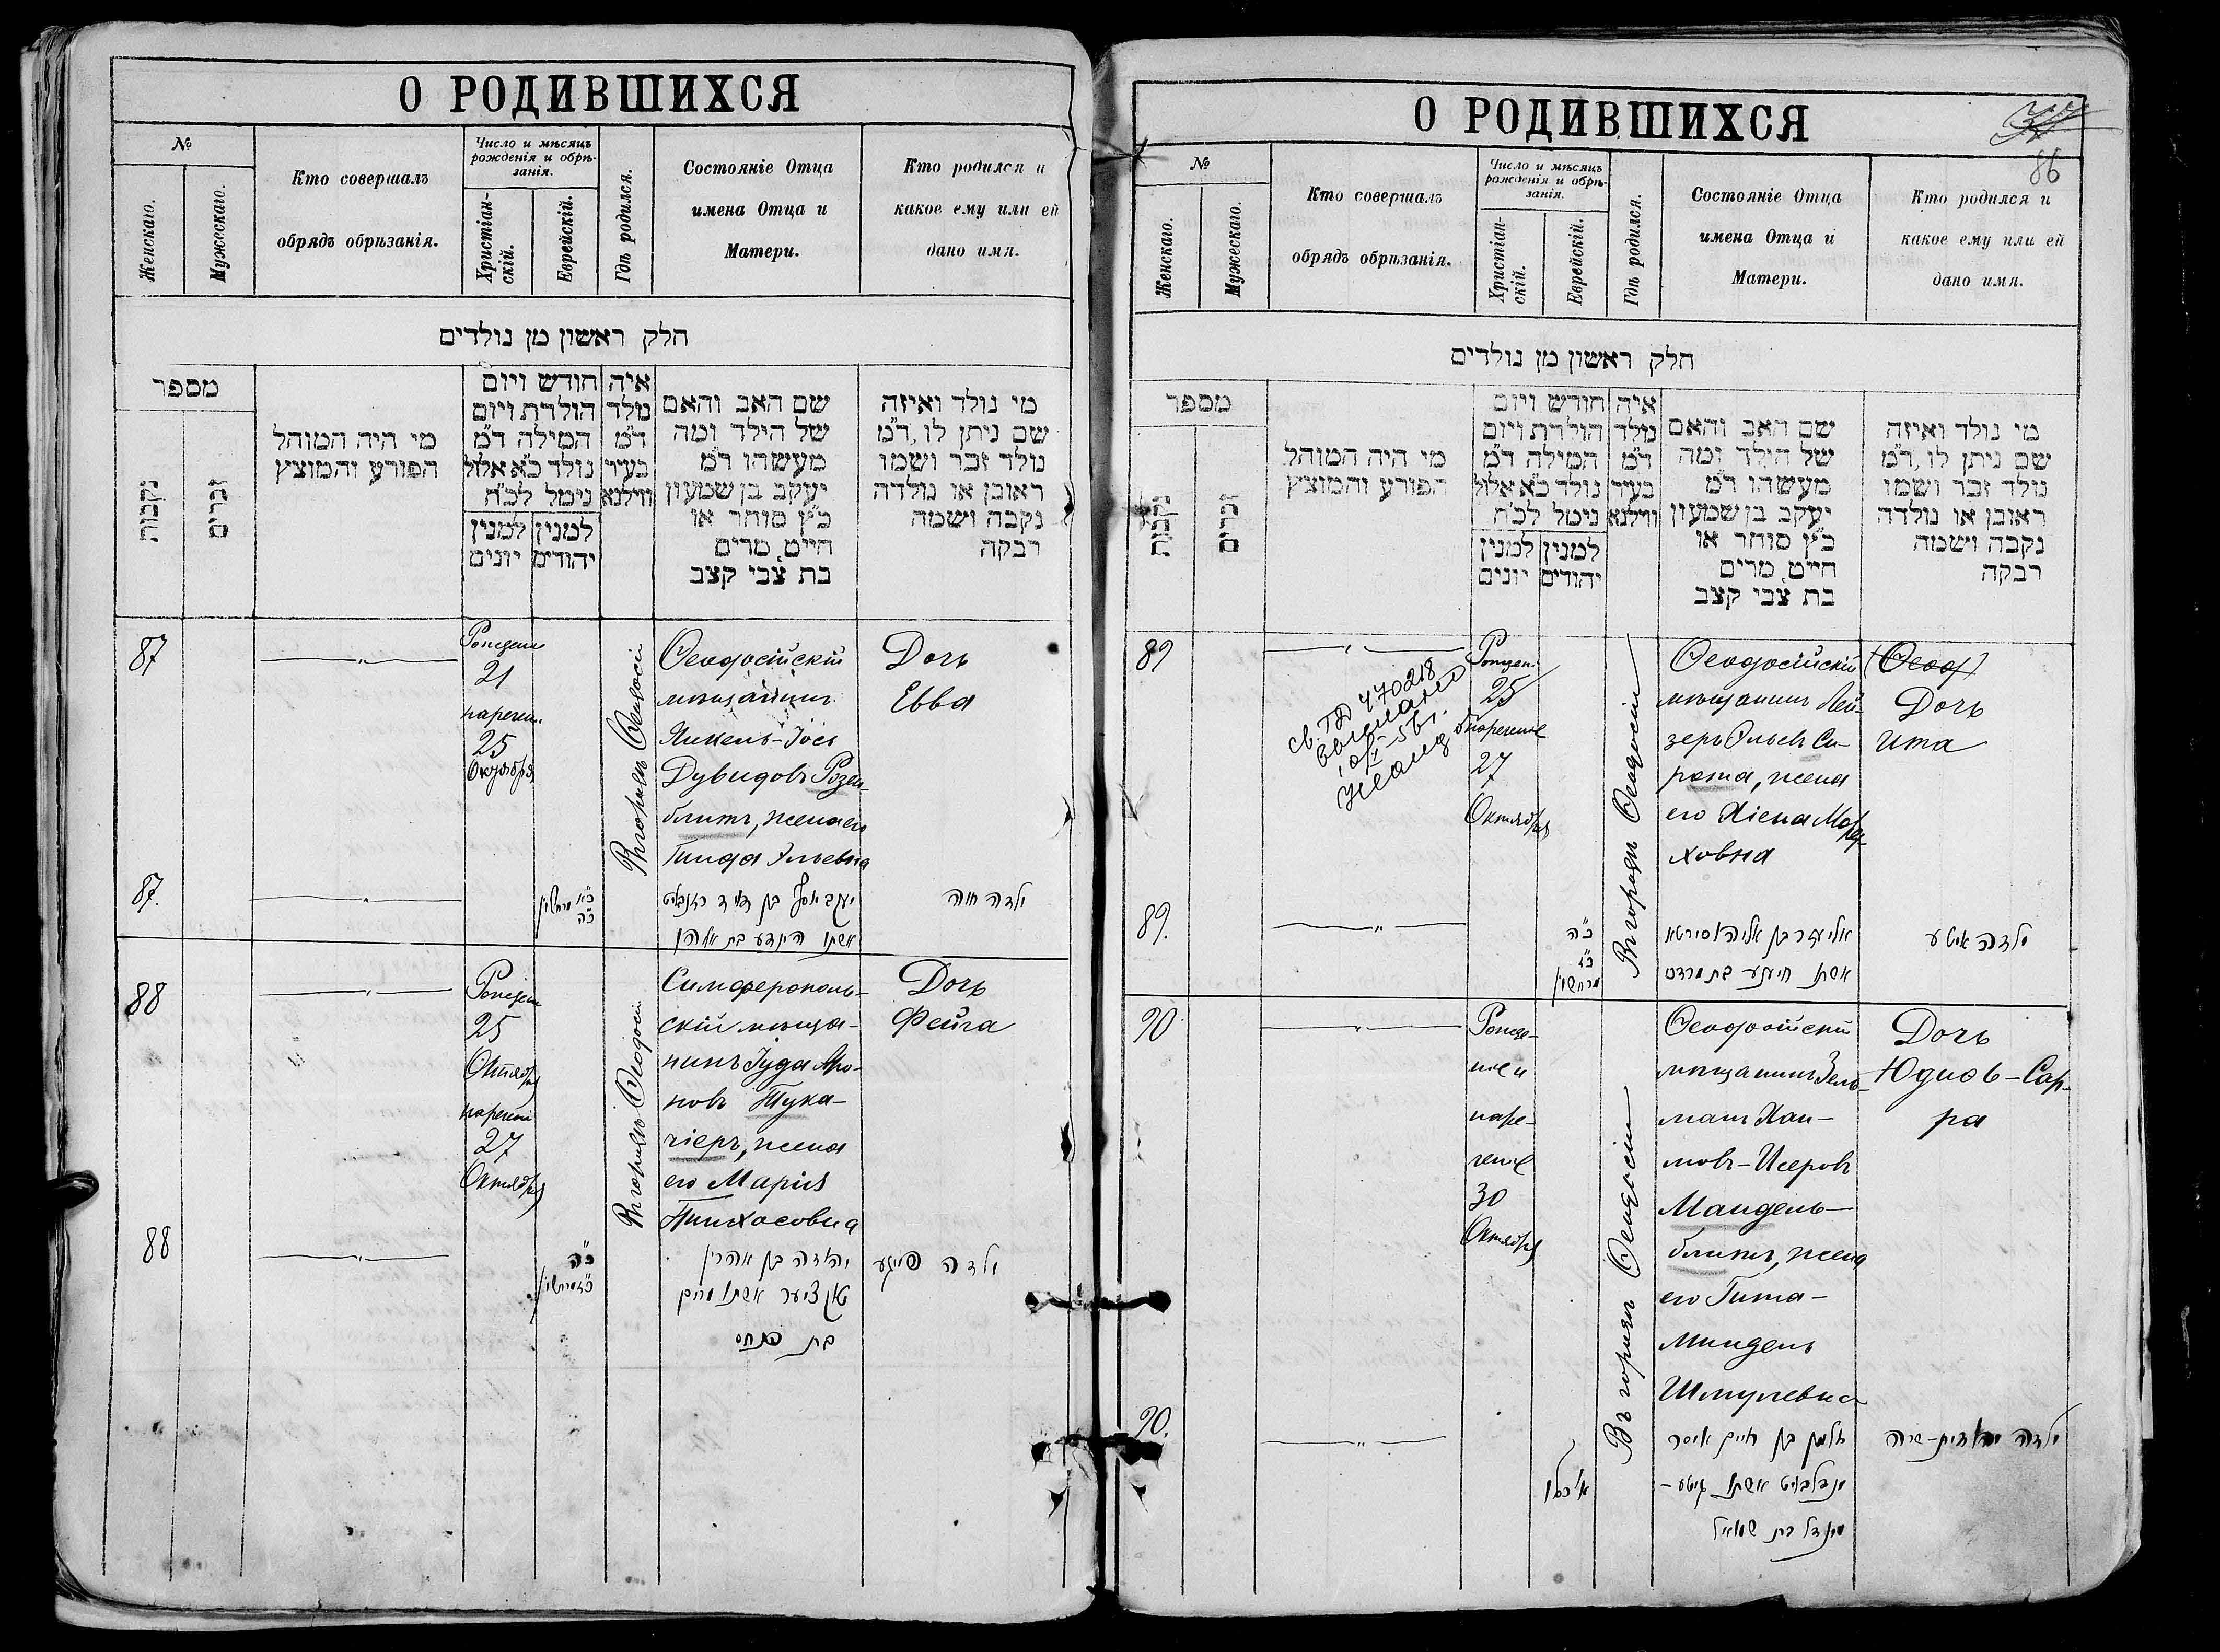 О РОДИВШИХСЯ
№
Женскаго.
Мужескаго.
Кто совершалъ
обрядъ обрѣзанія.
Число и мѣсяцъ
рожденія и обрѣ-
занія.
Христіан-
скій.
Еврейскій.
Гдѣ родился.
Состояніе Отца
имена Отца и
Матери.
Кто родился и
какое ему или ей
дано имя.
חלק ראשון מן נולדים
מספר
נקבות
זכרים
מי היה המוהל
הפורע והמוצץ
חודש ויום
הולדת ויום
המילה ד"מ
נולד כ"א אלול
נימל לכ"ח
למנין
יהודים
למנין
יונים
איה
נולד
ד"מ
בעיר
ווילנא
שם האב והאם
של הילד ומה
מעשהו ד"מ
יעקב בן שמעון
כ"ץ סוחר או
חייט, מרים
בת צבי קצב
מי נולד ואיזה
שם ניתן לו, ד"מ
נולד זכר ושמו
ראובן או נולדה
נקבה ושמה
רבקה
87
21
25
Октября
Въ городѣ Ѳеодосіи
Ѳеодосійскій
мѣщанинъ
Янкель-Іось
Дувидовъ Розен-
блитъ, жена его
Гинда Эльевна
Дочь
Евва
87.
כ"א מרחשון
כ"ה
יעקב יוסף בן דוד רזנבליט
אשתו הינדע בת אליהו
ילדה חוה
88
25
Октября
27
Октября
Въ городѣ Ѳеодосіи
Симферополь-
скій мѣща-
нинъ Іуда Аро-
новъ Тука-
чіеръ, жена
его Марія
Пинхасовна
Дочь
Фейга
88
כ"ה
כ"ז מרחשון
יהודה בן אהרן
אשתו מרים
בת פנחס
ילדה פייגע
О РОДИВШИХСЯ
86
№
Женскаго.
Мужескаго.
Кто совершалъ
обрядъ обрѣзанія.
Число и мѣсяцъ
рожденія и обрѣ-
занія.
Христіан-
скій.
Еврейскій.
Гдѣ родился.
Состояніе Отца
имена Отца и
Матери.
Кто родился и
какое ему или ей
дано имя.
חלק ראשון מן נולדים
מספר
נקבות
זכרים
מי היה המוהל
הפורע והמוצץ
חודש ויום
הולדת ויום
המילה ד"מ
נולד כ"א אלול
נימל לכ"ח
למנין
יהודים
למנין
יונים
איה
נולד
ד"מ
בעיר
ווילנא
שם האב והאם
של הילד ומה
מעשהו ד"מ
יעקב בן שמעון
כ"ץ סוחר או
חייט, מרים
בת צבי קצב
מי נולד ואיזה
שם ניתן לו, ד"מ
נולד זכר ושמו
ראובן או נולדה
נקבה ושמה
רבקה
89
св. ТД 470218
25
нареченіе
27
Октября
Въ городѣ Ѳеодосіи
Ѳеодосійскій
мѣщанинъ Лей-
зеръ Эльевъ Си-
рота, жена
его Хіена Морд-
ховна
(Ѳеод)
Дочь
Ита
89.
כ"ה
כ"ז
מרחשון
אליעזר בן אליהו סירטא
אשתו חיענע בת מרדכי
ילדה איטע
90
Рожде-
ніе и
наре-
ченіе
30
Октября
Въ городѣ Ѳеодосіи
Ѳеодосійскій
мѣщанинъ Зель-
манъ Хаи-
мовъ-Исеровъ
Мандель-
блитъ, жена
его Гита-
Миндель
Шмулевна
Дочь
Юдиѳь-Сар-
ра
90.
א' כסלו
זלמן בן חיים איסר
מנדלבליט אשתו גיטע-
מינדל בת שמואל
ילדה יהודית-שרה